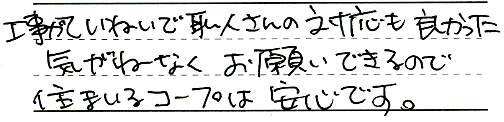 工事がていねいで職人さんの対応も良かった
気がねーなく お願いできるので
住まいるコープは 安心です。